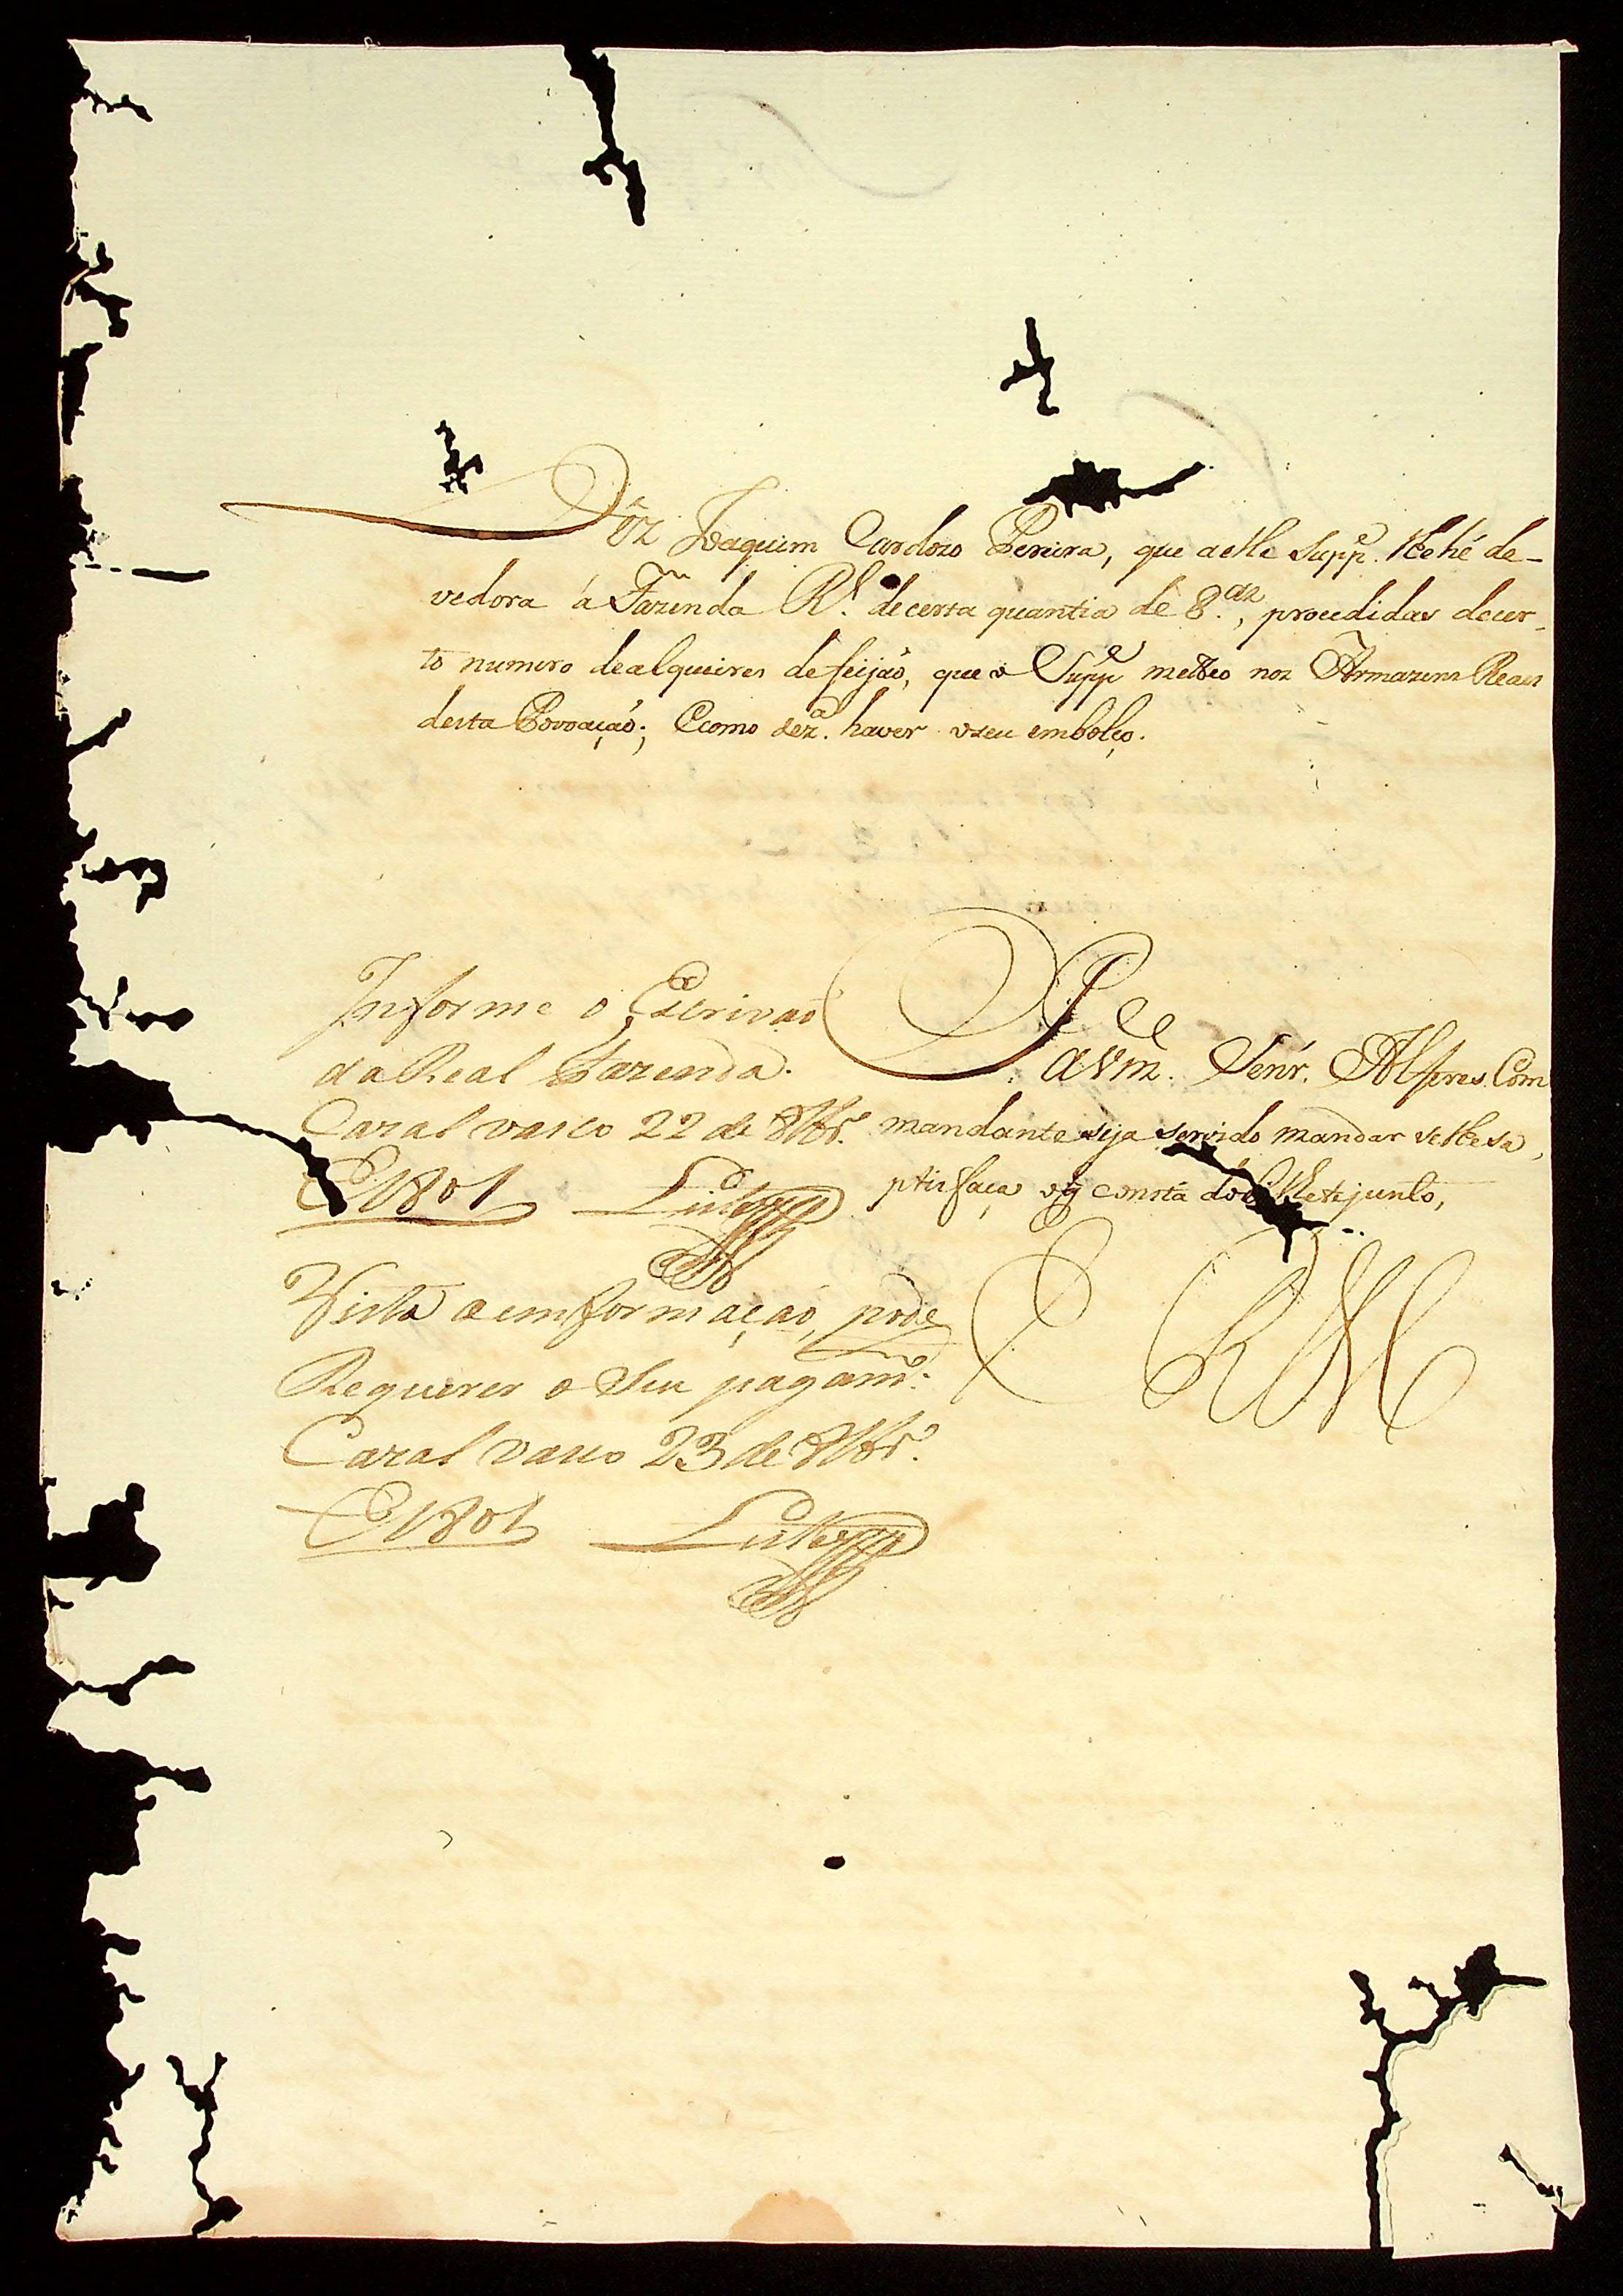 Diz Joaquim Cardozo Pereira, que aelle Supp.e lhe hé de-
vedora á Fazenda R.l decerta quantia de 8.as, procedidas decer-
to numero dealqueires de feijaõ, que o Supp.e metteo nos Armazens Reaes
desta Povoaçaõ; Ecomo dez.a haver oseu embolço.
P e
a Vm. Senr. Alferes Com
mandante seja servido mandar selhe sa
tisfaça oq consta do junto,
E R M
Informe o Escrivaõ
da Real Fazenda.
Cazal vasco 22 de 8br.o
E 1801
Vista aemformaçaõ, pode
Requerer o Seu pagam.to
Cazal vasco 23 de 8br.o
E 1801